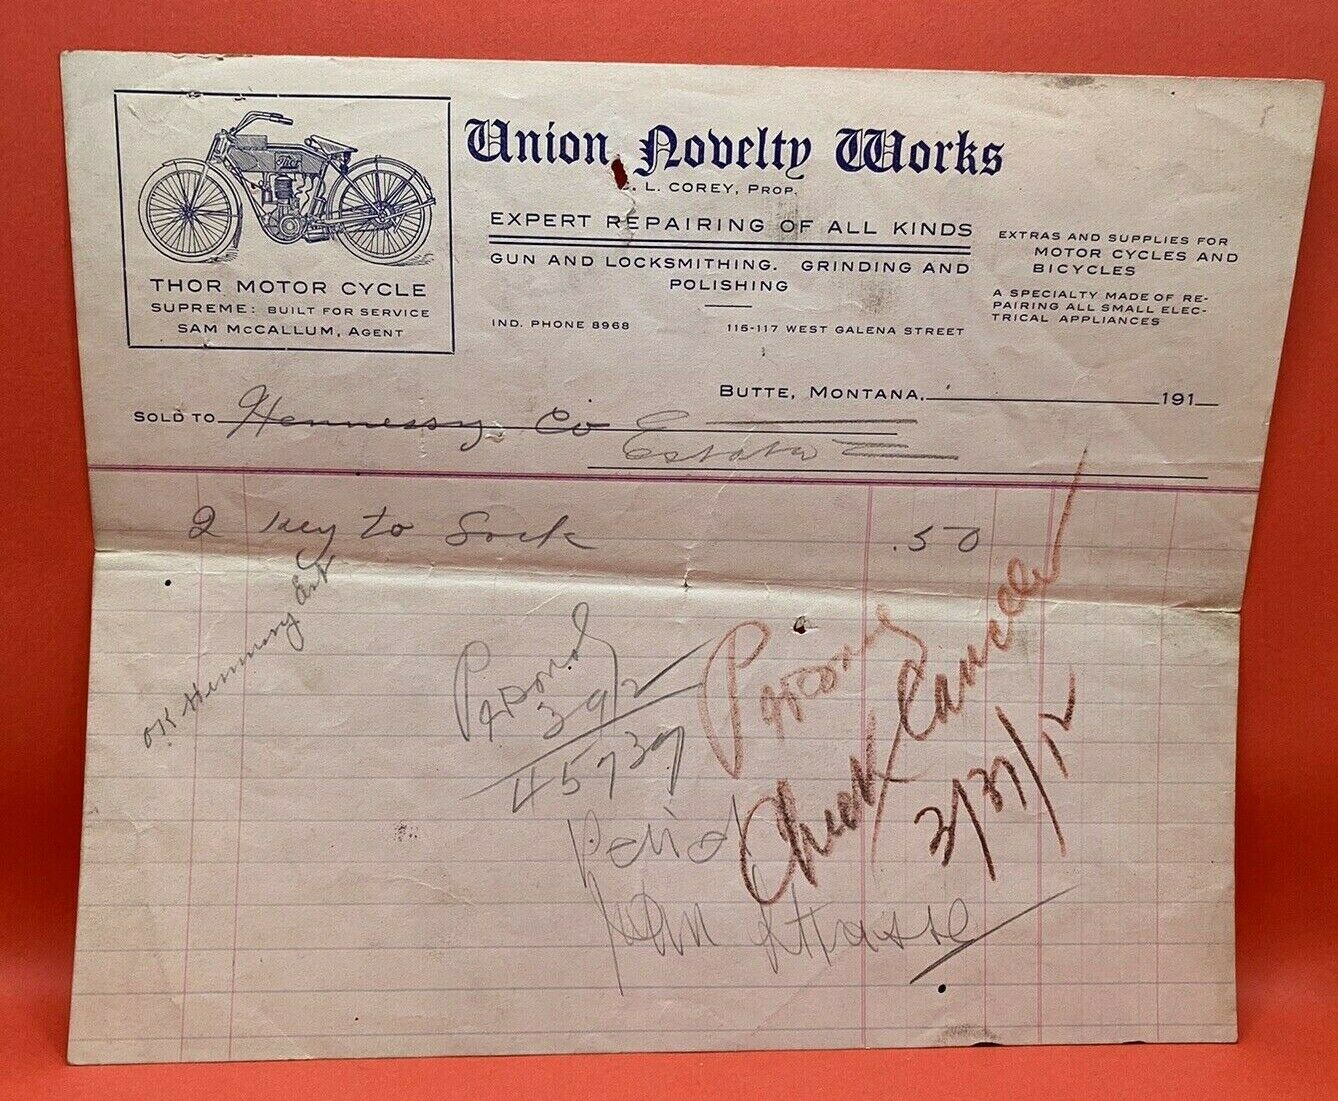 Union Novelty Works
L. COREY, PROP.
EXPERT REPAIRING OF ALL KINDS
GUN AND LOCKSMITHING. GRINDING AND
POLISHING
IND. PHONE 8968
115-117 WEST GALENA STREET
EXTRAS AND SUPPLIES FOR
MOTOR CYCLES AND
BICYCLES
A SPECIALTY MADE OF RE-
PAIRING ALL SMALL ELEC-
TRICAL APPLIANCES
Thor
THOR MOTOR CYCLE
SUPREME: BUILT FOR SERVICE
SAM McCALLUM, AGENT
BUTTE, MONTANA, 191
SOLD TO Hennessy Co
2 Key to Sock .50
OK
45739
Paid
Check Cancelled
3/27/12